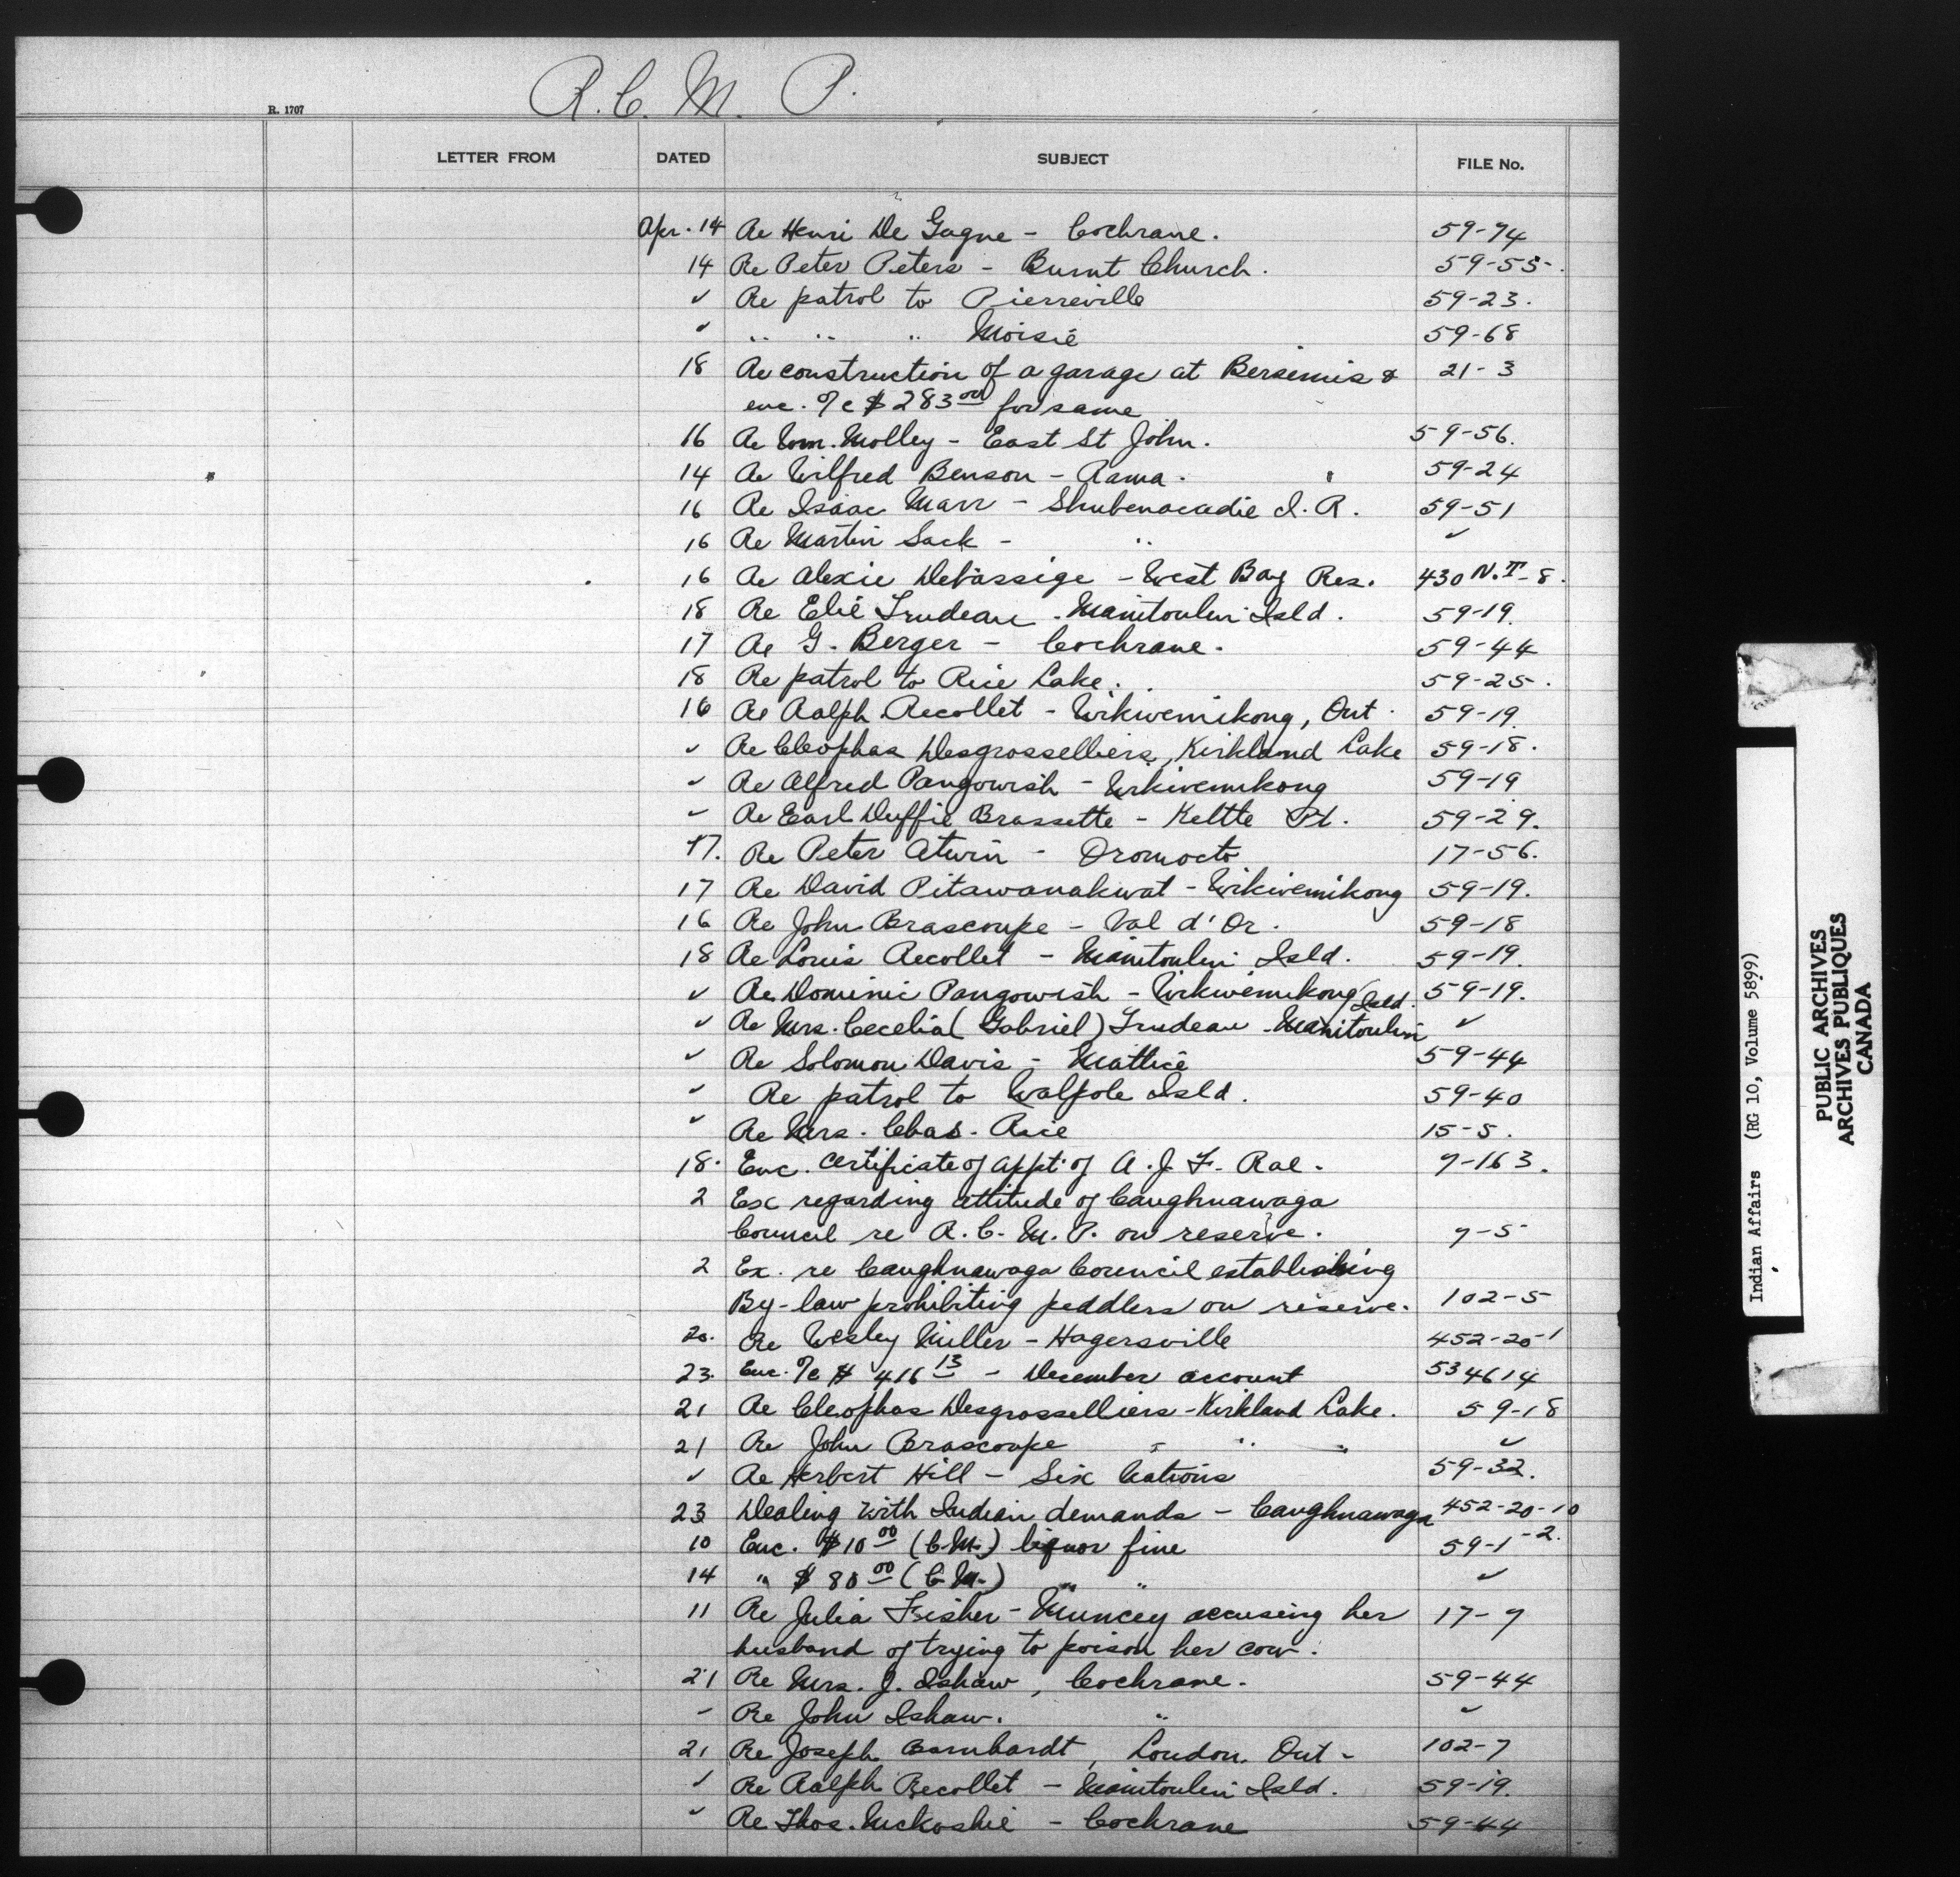 R. C. M. P.
R. 1707
LETTER FROM DATED SUBJECT FILE No.
Apr. 14 Re Henri De Gagne - Cochrane. 59-74
14 Re Peter Peters - Burnt Church. 59-55.
✓ Re patrol to Pierreville 59-23.
✓ .. .. .. Moisie 59-68
18 Re construction of a garage at Bersimis & 21-3
enc. %c $283 00 for same
16 Re Wm. Molley - East St John. 59-56.
14 Re Wilfred Benson - Rama. 59-24
16 Re Isaac Marr - Shubenacadie I. R. 59-51
16 Re Martin Sack - .. ✓
16 Re Alexie Debassige - West Bay Res. 430 N.T-8.
18 Re Elie Trudeau - Manitoulin Isld. 59-19.
17 Re G. Berger - Cochrane. 59-44
18 Re patrol to Rice Lake. 59-25.
16 Re Ralph Recollet - Wikwemikong, Ont. 59-19
✓ Re Cleophas Desgrosselliers, Kirkland Lake 59-18.
✓ Re Alfred Pangowish - Wikwemikong 59-19
✓ Re Earl Duffie Brassette - Kettle Pt. 59-29.
17. Re Peter Atwin - Oromocto 17-56.
17 Re David Pitawanakwat - Wikwemikong 59-19.
16 Re John Brascoupe - Val d'Or. 59-18
18 Re Louis Recollet - Manitoulin Isld. 59-19.
✓ Re Dominic Pangowish - Wikwemikong 59-19.
✓ Re Mrs. Cecelia (Gabriel) Trudeau - Manitoulin Isld. ✓
✓ Re Solomon Davis - Mattice 59-44
✓ Re patrol to Walpole Isld. 59-40
✓ Re Mrs. Chas. Rice 15-5.
18. Enc. certificate of appt. of A. J. F. Rae. 7-163.
2 Ex regarding attitude of Caughnawaga
Council re R. C. M. P. on reserve. 7-5
2 Ex. re Caughnawaga Council establishing
By-law prohibiting peddlers on reserve. 102-5
20. Re Wesley Miller - Hagersville 452-20-1
23. Enc. %c $ 416 13 - December account 534614
21 Re Cleophas Desgrosselliers - Kirkland Lake. 59-18
21 Re John Brascoupe - .. " ✓
✓ Re Herbert Hill - Six Nations 59-32.
23 Dealing with Indian demands - Caughnawaga 452-20-10
10 Enc. $10 00 (C.M.) liquor fine 59-1-2.
14 " $80 00 (C.M.) " " ✓
11 Re Julia Fisher - Muncey accusing her 17-7
husband of trying to poison her cow.
21 Re Mrs. J. Ishaw, Cochrane. 59-44
- Re John Ishaw. " ✓
21 Re Joseph Barnhardt, London, Ont - 102-7
✓ Re Ralph Recollet - Manitoulin Isld. 59-19.
✓ Re Thos. Mckoshie - Cochrane 59-44
Indian Affairs (RG 10, Volume 5899)
PUBLIC ARCHIVES
ARCHIVES PUBLIQUES
CANADA